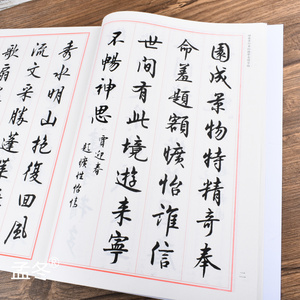 園成景物特精奇奉
命羞題額曠怡誰信
世間有此境遊来寧
不暢神思
賈迎春
題曠性怡情
秀水明山抱復回風
流文采勝蓬莱